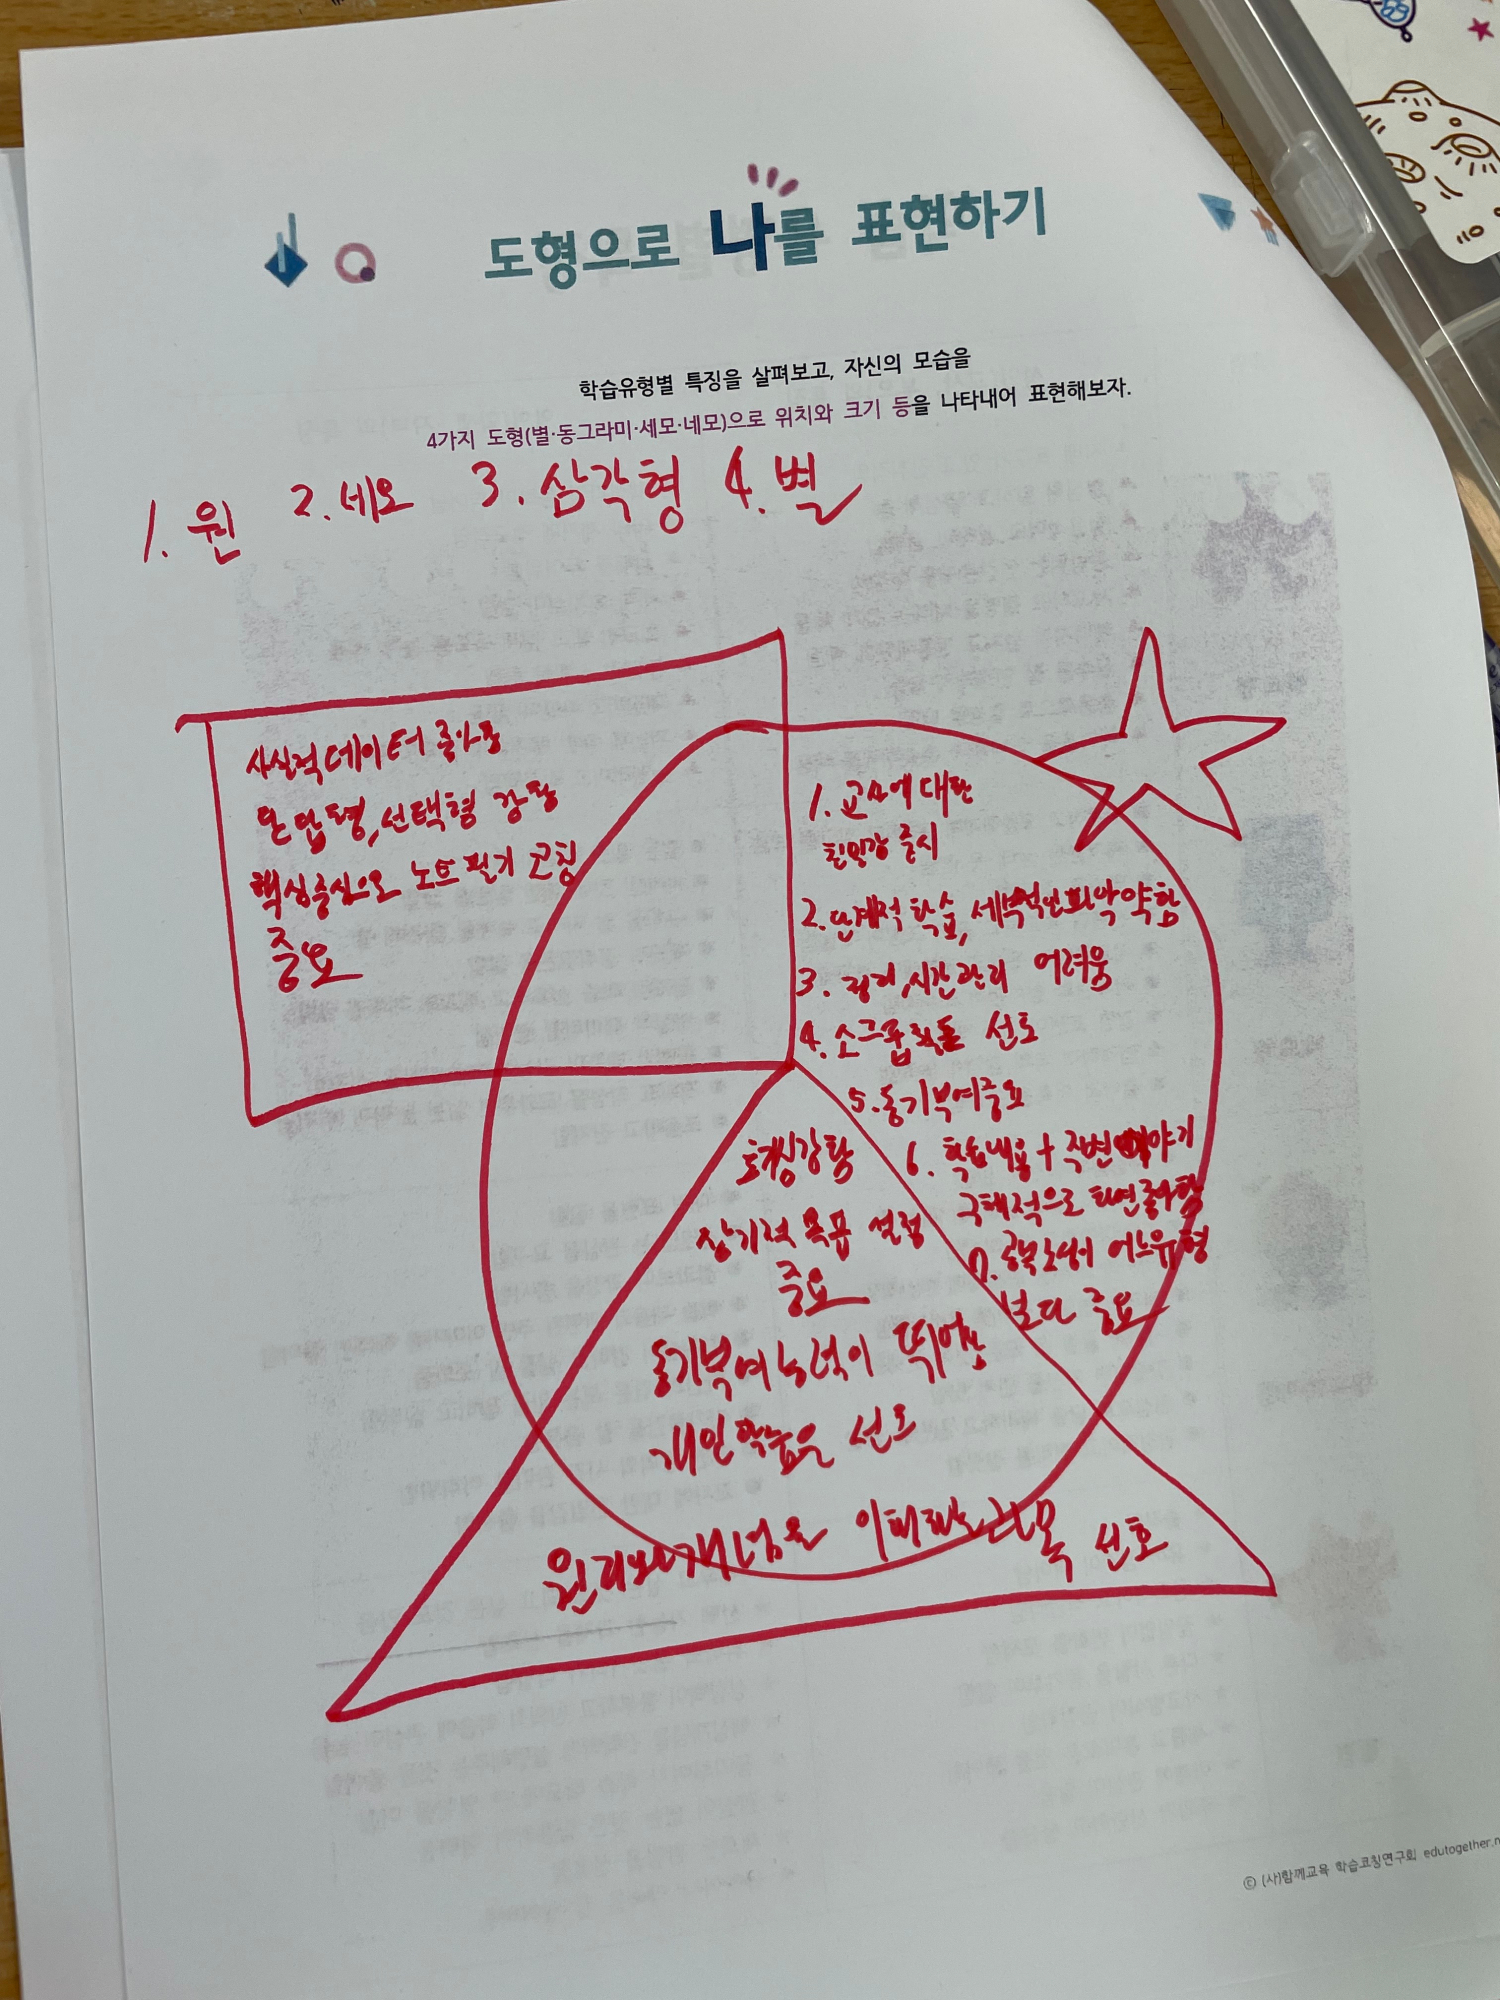 도형으로 나를 표현하기
학습유형별 특징을 살펴보고, 자신의 모습을
4가지 도형(별·동그라미·세모·네모)으로 위치와 크기 등을 나타내어 표현해보자.
1. 원 2. 세모 3. 삼각형 4. 별
사실적 데이터 좋아함
단답형, 선택형 강함
핵심중심으로 노트필기 코칭
중요
1. 교사에 대한
친밀감 중시
2. 단계적 학습, 세부적인 파악 약함
3. 정리, 시간관리 어려움
4. 소그룹 활동 선호
5. 동기부여중요
6. 학습내용 + 주변이야기
구체적으로 표현좋아함
7. 공부 어느유형
보다 중요
토카싱강함
장기적 목표 설정
중요
동기부여 능력이 뛰어남
개인학습을 선호
원리와 개념을 과목 선호
© (사)함께교육 학습코칭연구회 edutogether.n